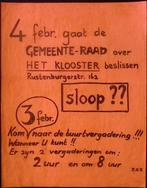 4 febr. gaat de
GEMEENTE-RAAD over
HET KLOOSTER beslissen
Rustenburgerstr.
sloop ??
3 febr.
Kom naar de buurtvergadering !!!
Wanneer U kunt !!
Er zyn 2 vergaderingen om:
2 uur en om 8 uur